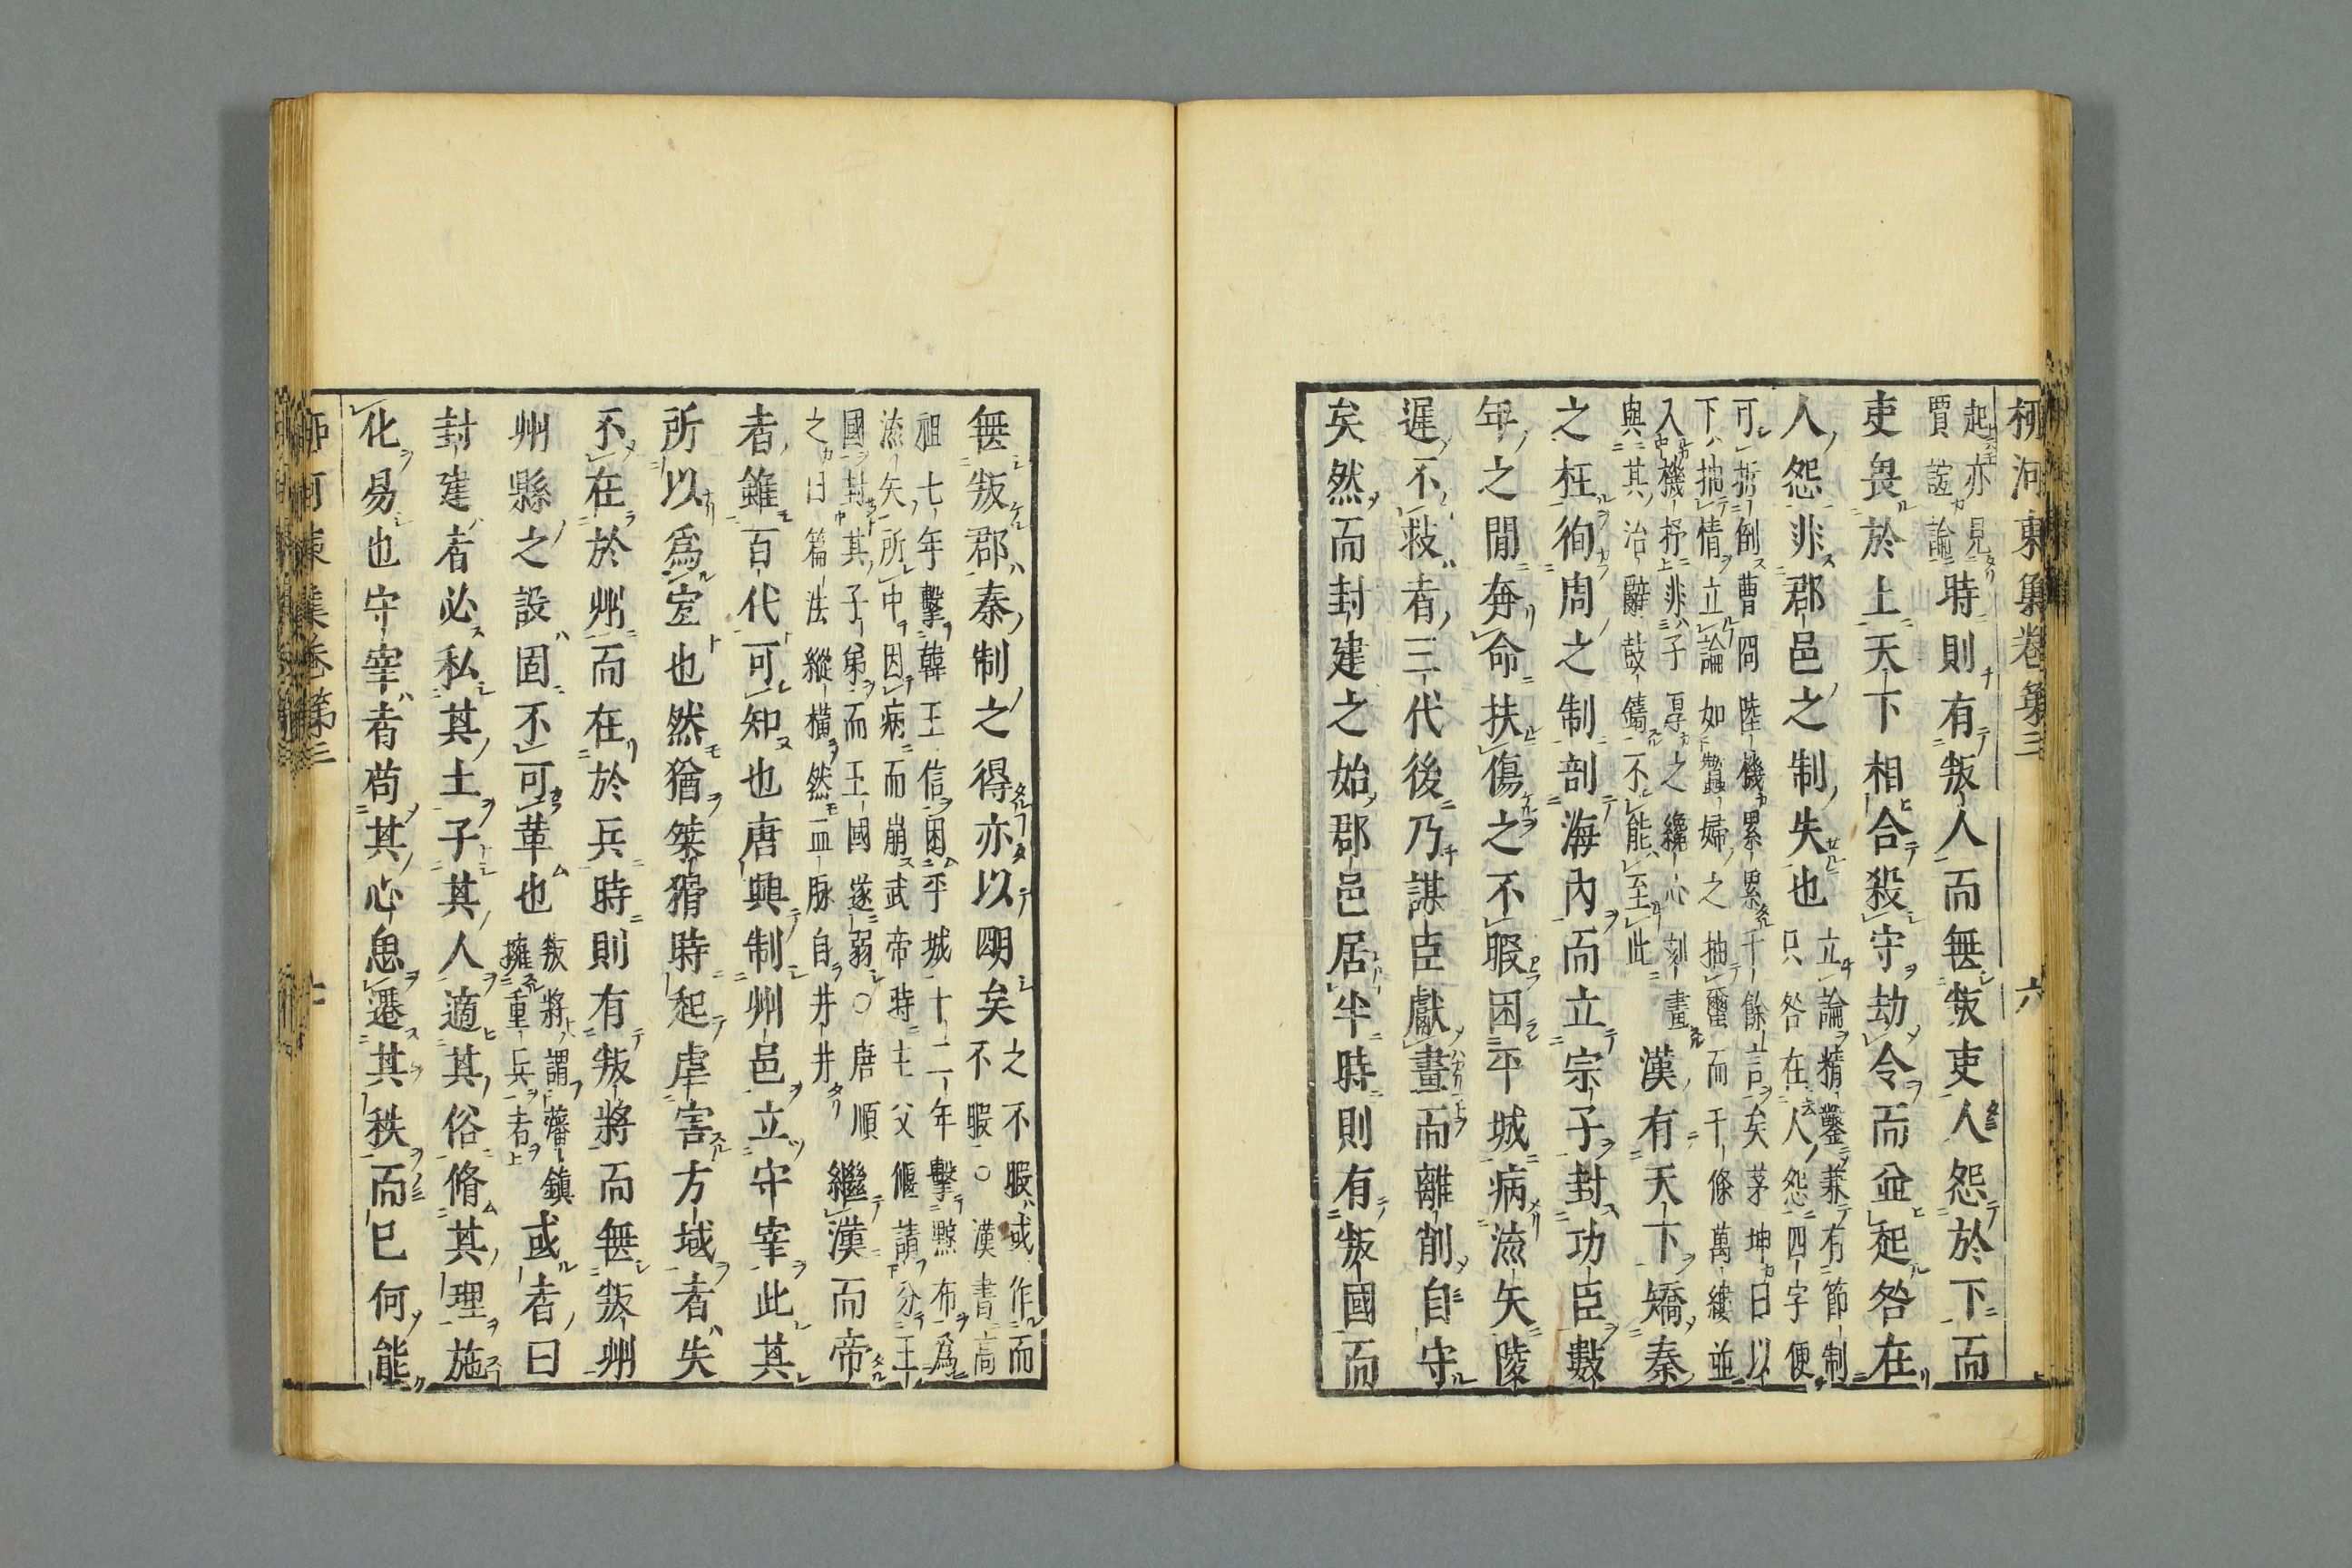 柳河東集卷第三　六
起亦見
賈誼論
時則有叛人而無叛吏人怨於下而
吏畏於上天下相合殺守劫令而並起咎在
人怨非郡邑之制失也
立論精鑿兼有節制
只咎在人怨四字便
可折倒曹冏陸機累累千餘言矣茅坤曰以
下抽情立論如蠶婦之抽璽而千條萬縷並
入機抒非子厚之纔心刻畫
與其治辭鼓鑄不能至此
漢有天下矯秦
之枉徇周之制剖海內而立宗子封功臣數
年之閒奔命扶傷之不暇困平城病流矢陵
遲不救者三代後乃謀臣獻畫而離削自守
矣然而封建之始郡邑居半時則有叛國而
無叛郡秦制之得亦以明矣
之不暇或作而
不暇○漢書高
祖七年擊韓王信困平城十二年擊黥布爲
流矢所中因病而崩武帝時主父偃請分王
國封其子弟而王國遂弱○唐順
之曰篇法縱橫然血脉自井井
繼漢而帝
者雖百代可知也唐興制州邑立守宰此其
所以爲宜也然猶桀猾時起虐害方域者失
不在於州而在於兵時則有叛將而無叛州
州縣之設固不可革也
叛將謂藩鎮
擁重兵者
或者曰
封建者必私其土子其人適其俗脩其理施
化易也守宰者苟其心思遷其秩而已何能